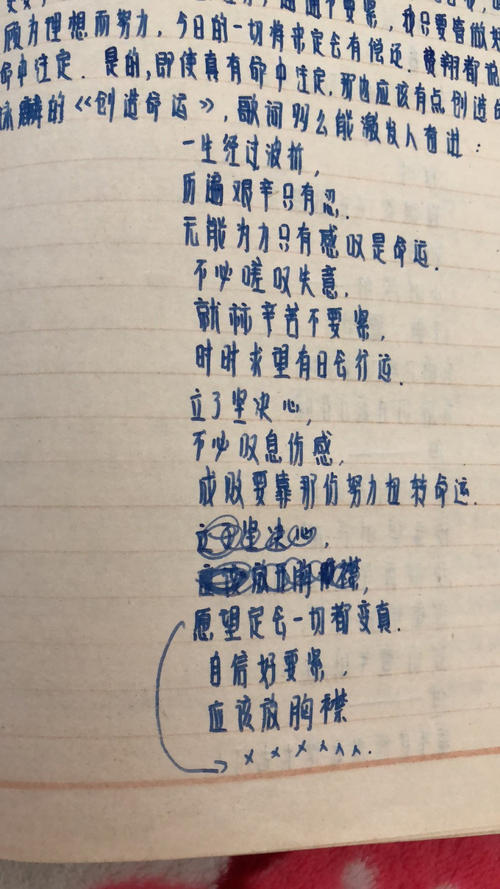 不要紧，我只要喜做好
顾为理想而努力，今日的一切将来定会有偿还.黄翔都也
命中注定.是的,即使真有命中注定.那也应该有点创造命
麟的《创造命运》,歌词叫么能激发人奋进：
一生经过波折，
历遍艰辛只有忍.
无能为力只有感叹是命运.
不必嗟叹失意，
就称辛苦不要紧,
时时求望有日会行运.
立了坚决心,
不必叹息伤感,
成败要靠那份努力扭转命运.
立了坚决心,
放 胸襟,
愿望定会一切都变真.
自信好要紧,
应该放胸襟
× × × × × × .